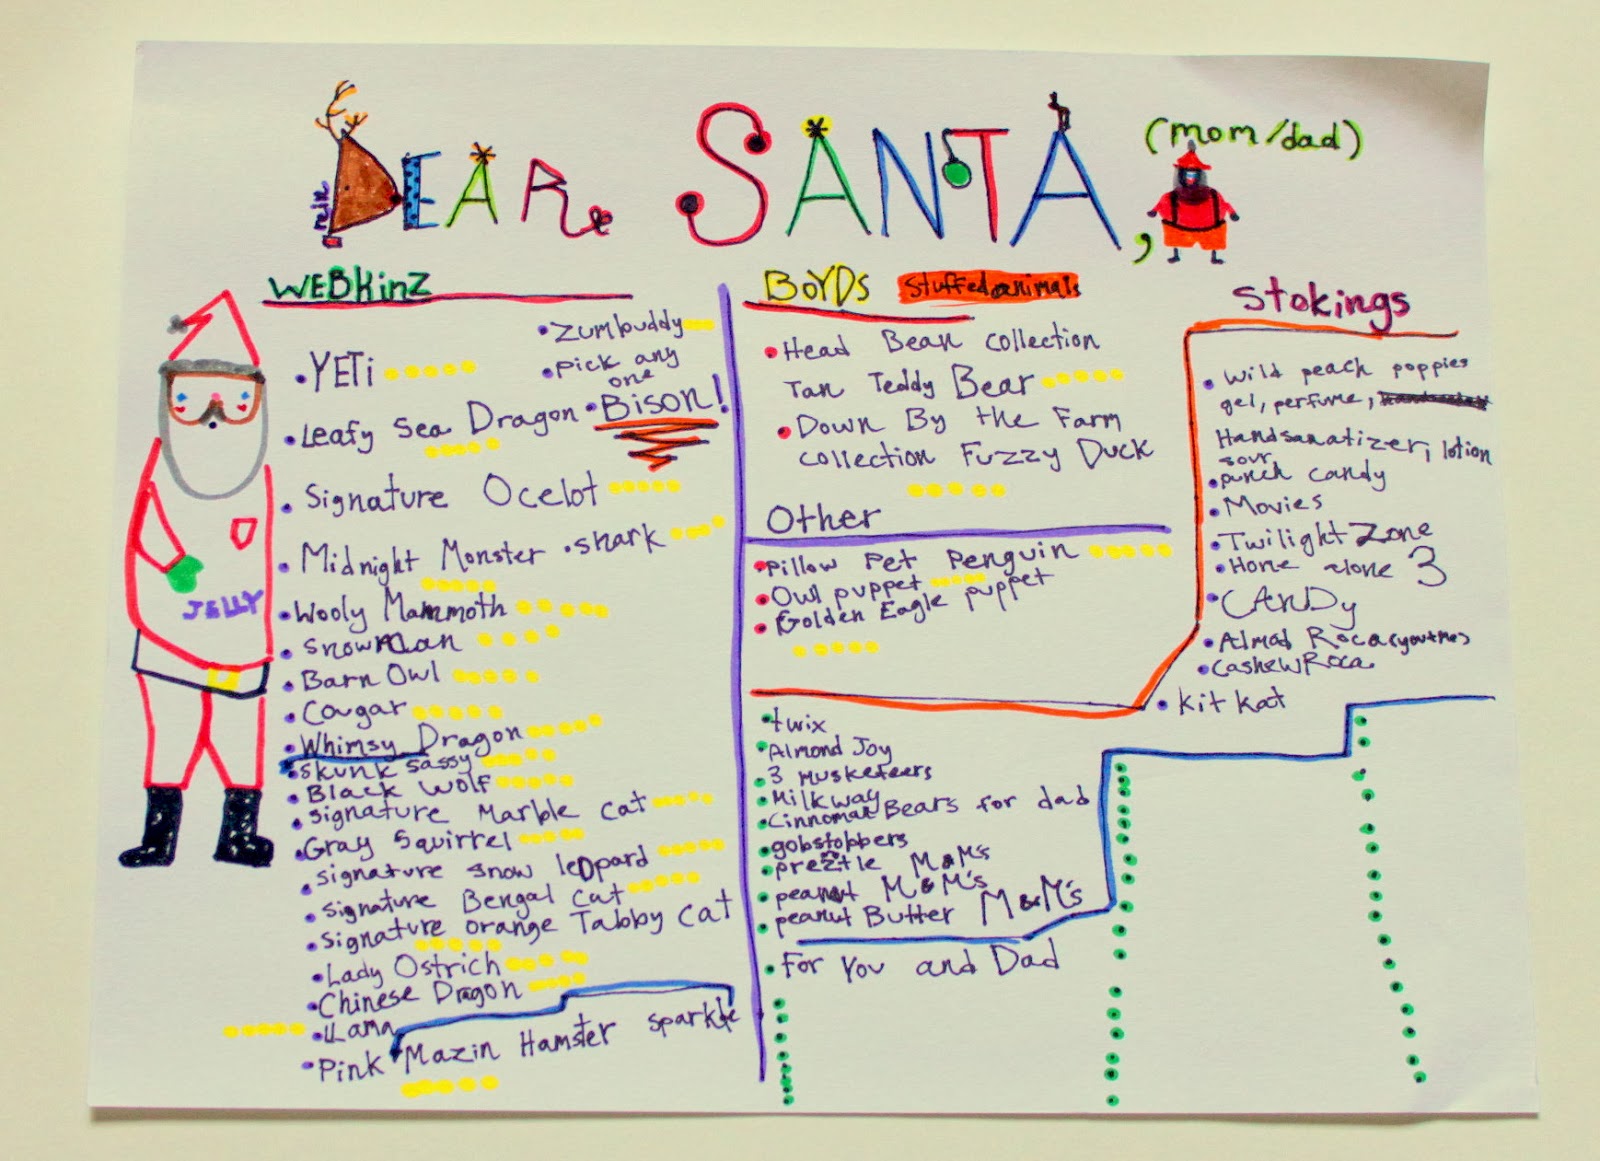 DEAR SANTA, (mom/dad)
rein
WEBKinZ
• Zumbuddy
• Pick any
one
• YETi
• Bison!
• Leafy Sea Dragon
• Signature Ocelot
• Midnight Monster
• Shark
• Wooly Mammoth
• Snowman
• Barn Owl
• Cougar
• Whimsy Dragon
• Skunk Sassy
• Black Wolf
• Signature Marble Cat
• Gray Squirrel
• Signature Snow leopard
• Signature Bengal Cat
• Signature orange Tabby Cat
• Lady Ostrich
• Chinese Dragon
• LLama
• Pink Mazin Hamster Sparkle
JELLY
BOYDS Stuffed animals
• Head Bean Collection
Tan Teddy Bear
• Down By the Farm
collection Fuzzy Duck
Other
• Pillow Pet Penguin
• Owl puppet
• Golden Eagle puppet
Stokings
• Wild peach poppies
gel, perfume,
Handsanatizer, lotion
• sour
punch candy
• Movies
• Twilight Zone
• Home alone 3
• CANDy
• Almad Roca (youtMe)
• Cashew Roca
• Kit Kat
• twix
• Almond Joy
• 3 Musketeers
• Milkyway
• Cinnoman Bears for dad
• gobstobbers
• preztle M&M's
• peanut M&M's
• peanut Butter M&M's
• For You and Dad